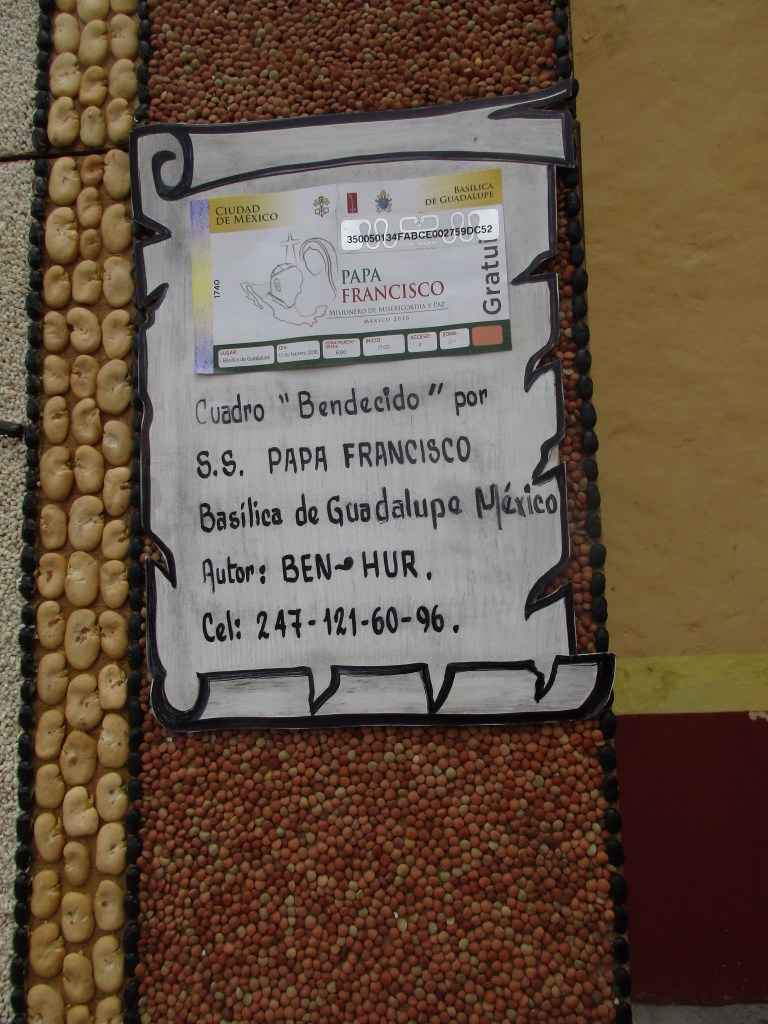 CIUDAD
DE MÉXICO
BASÍLICA
DE GUADALUPE
350050134FABCE002759DC52
1740
PAPA
FRANCISCO
MISIONERO DE MISERICORDIA Y PAZ
MÉXICO 2016
Gratui
LUGAR: DÍA: INICIO ACCESO: ZONA:
Basílica de Guadalupe 13 de febrero 2016 6:00 17:00 4
Cuadro "Bendecido" por
S.S. PAPA FRANCISCO
Basílica de Guadalupe México
Autor: BEN~HUR.
Cel: 247-121-60-96.